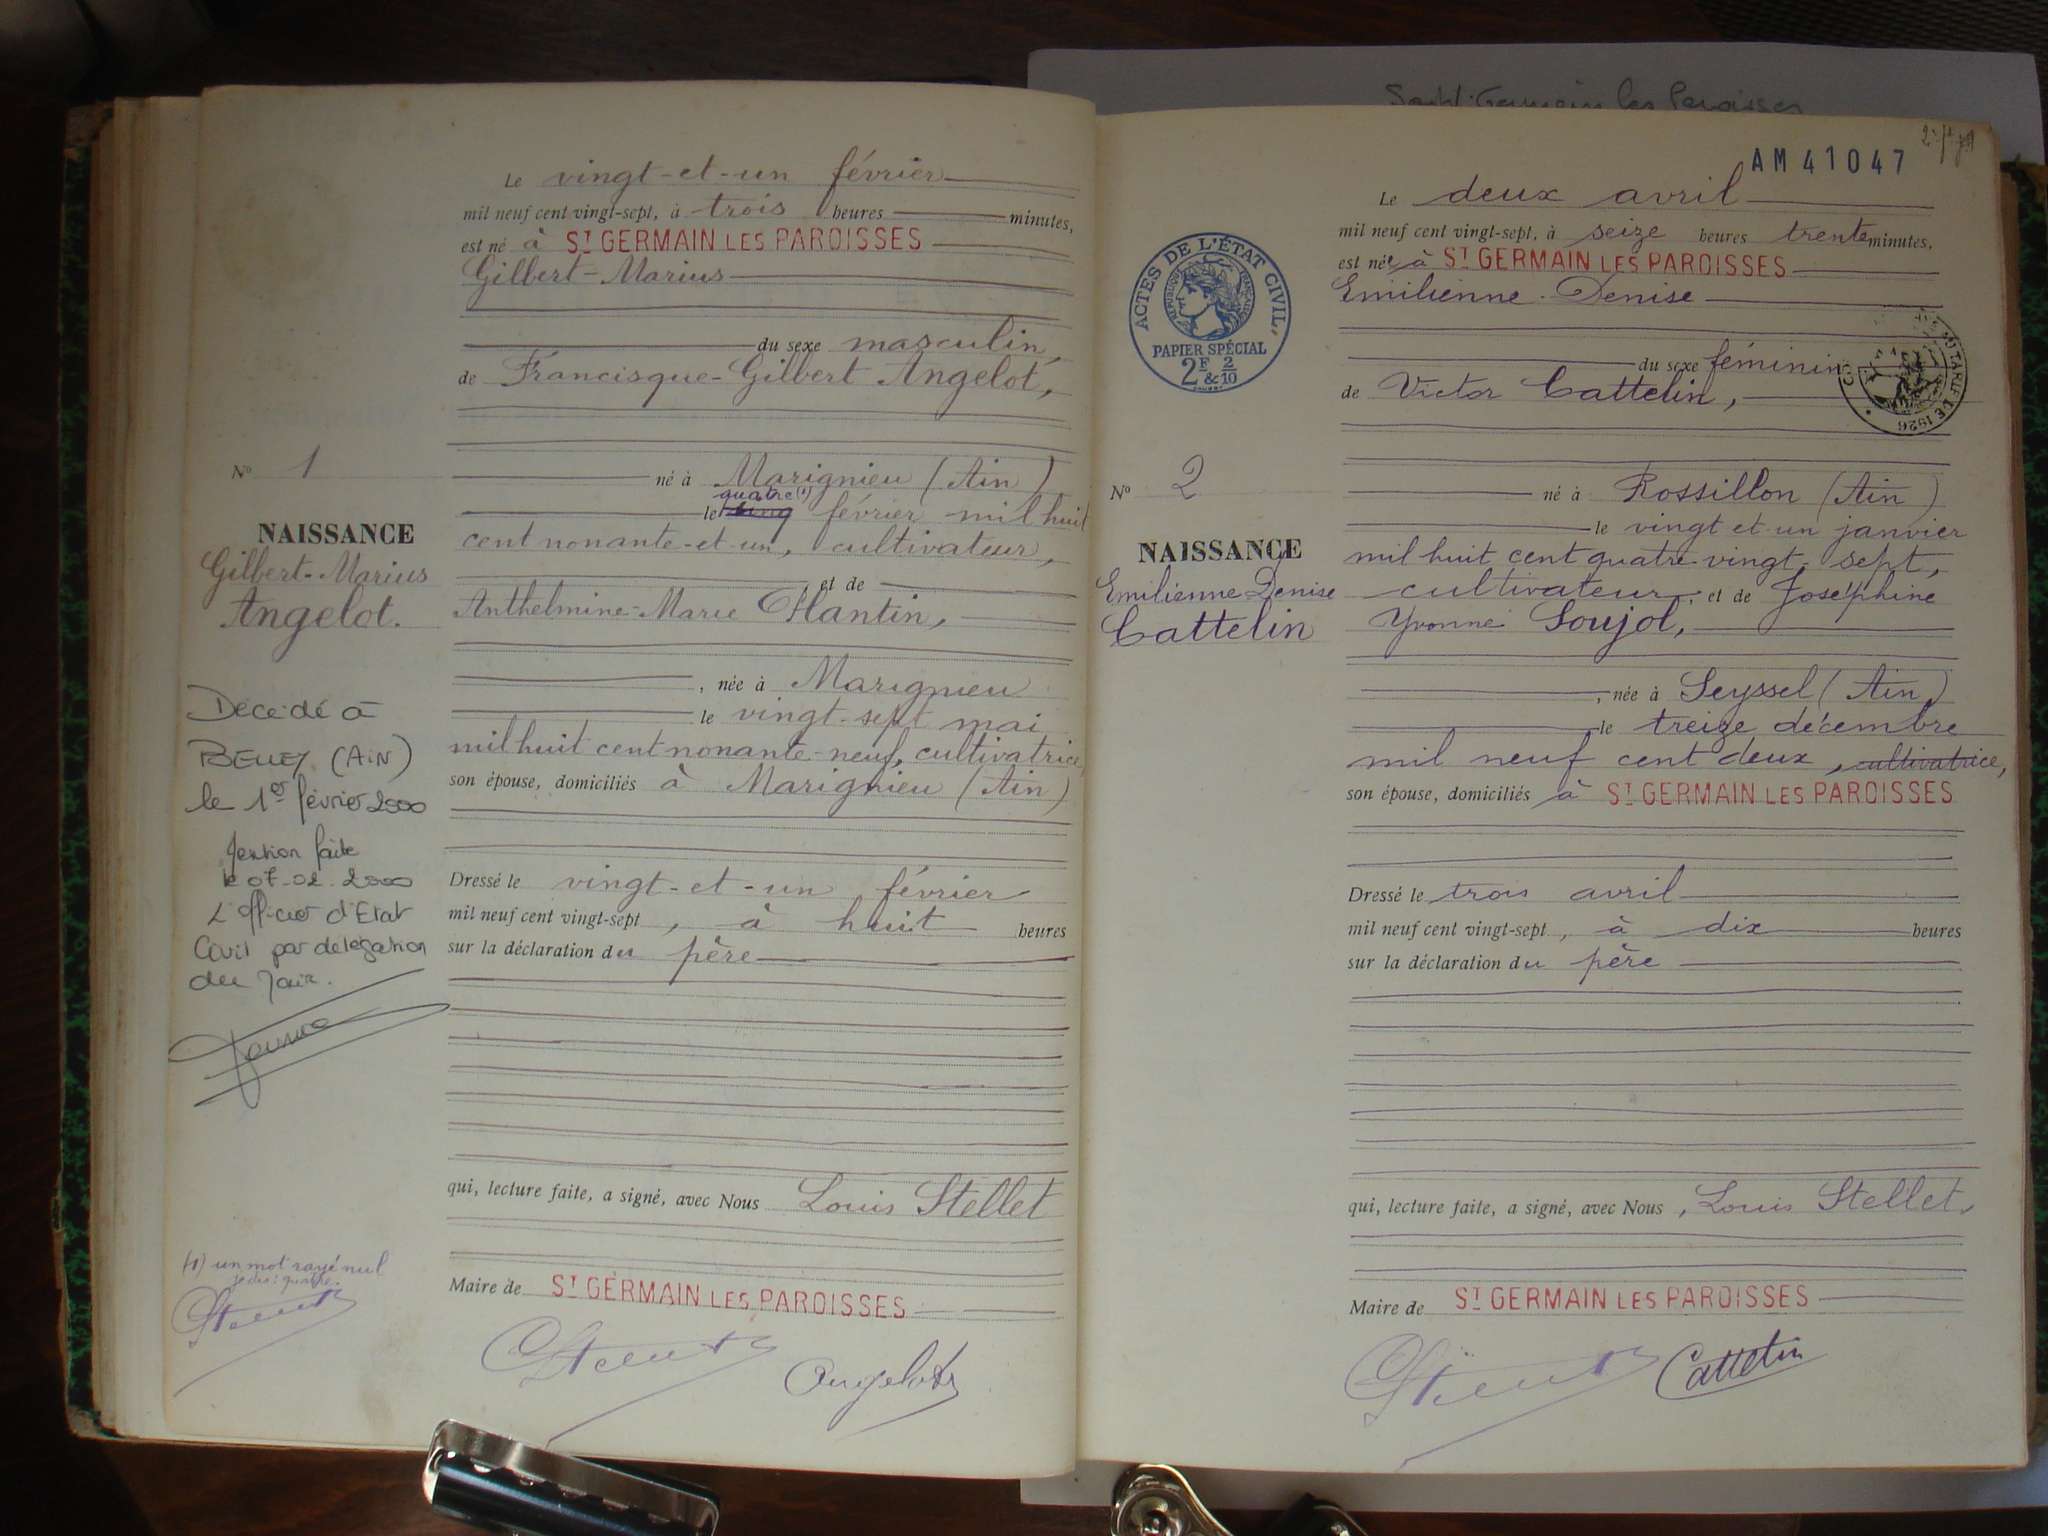 Saint-Germain les Paroisses
Le vingt-et-un février
mil neuf cent vingt-sept, à trois heures minutes,
est né à ST GERMAIN LES PAROISSES
Gilbert-Marius
du sexe masculin,
de Francisque-Gilbert Angelot,
N° 1
né à Marignieu (Ain)
quatre (1)
le cinq février mil huit
cent nonante-et-un, cultivateur,
et de
Anthelmine-Marie Plantin,
NAISSANCE
Gilbert-Marius
Angelot.
, née à Marignieu
le vingt-sept mai
mil huit cent nonante-neuf, cultivatrice,
son épouse, domiciliés à Marignieu (Ain)
Décédé à
BELLEY (AIN)
le 1er février 2000
Mention faite
le 07-02-2000
L'officier d'Etat
Civil par délégation
du Maire.
Dressé le vingt-et-un février
mil neuf cent vingt-sept, à huit heures
sur la déclaration du père
qui, lecture faite, a signé, avec Nous Louis Stellet
(1) un mot rayé nul
Maire de ST GERMAIN LES PAROISSES
Angelot
AM 41047
Le deux avril
mil neuf cent vingt-sept, à seize heures trente minutes,
est née à ST GERMAIN LES PAROISSES
Emilienne Denise
ACTES DE L'ÉTAT CIVIL
RÉPUBLIQUE FRANÇAISE
PAPIER SPÉCIAL
2F & 2/10
du sexe féminin
TARIF DE 1926
de Victor Cattelin,
N° 2
né à Rossillon (Ain)
le vingt et un janvier
mil huit cent quatre-vingt-sept,
cultivateur, et de Joséphine
Yvonne Soujol,
NAISSANCE
Emilienne Denise
Cattelin
, née à Seyssel (Ain)
le treize décembre
mil neuf cent deux, cultivatrice,
son épouse, domiciliés à ST GERMAIN LES PAROISSES
Dressé le trois avril
mil neuf cent vingt-sept, à dix heures
sur la déclaration du père
qui, lecture faite, a signé, avec Nous, Louis Stellet,
Maire de ST GERMAIN LES PAROISSES
Cattelin